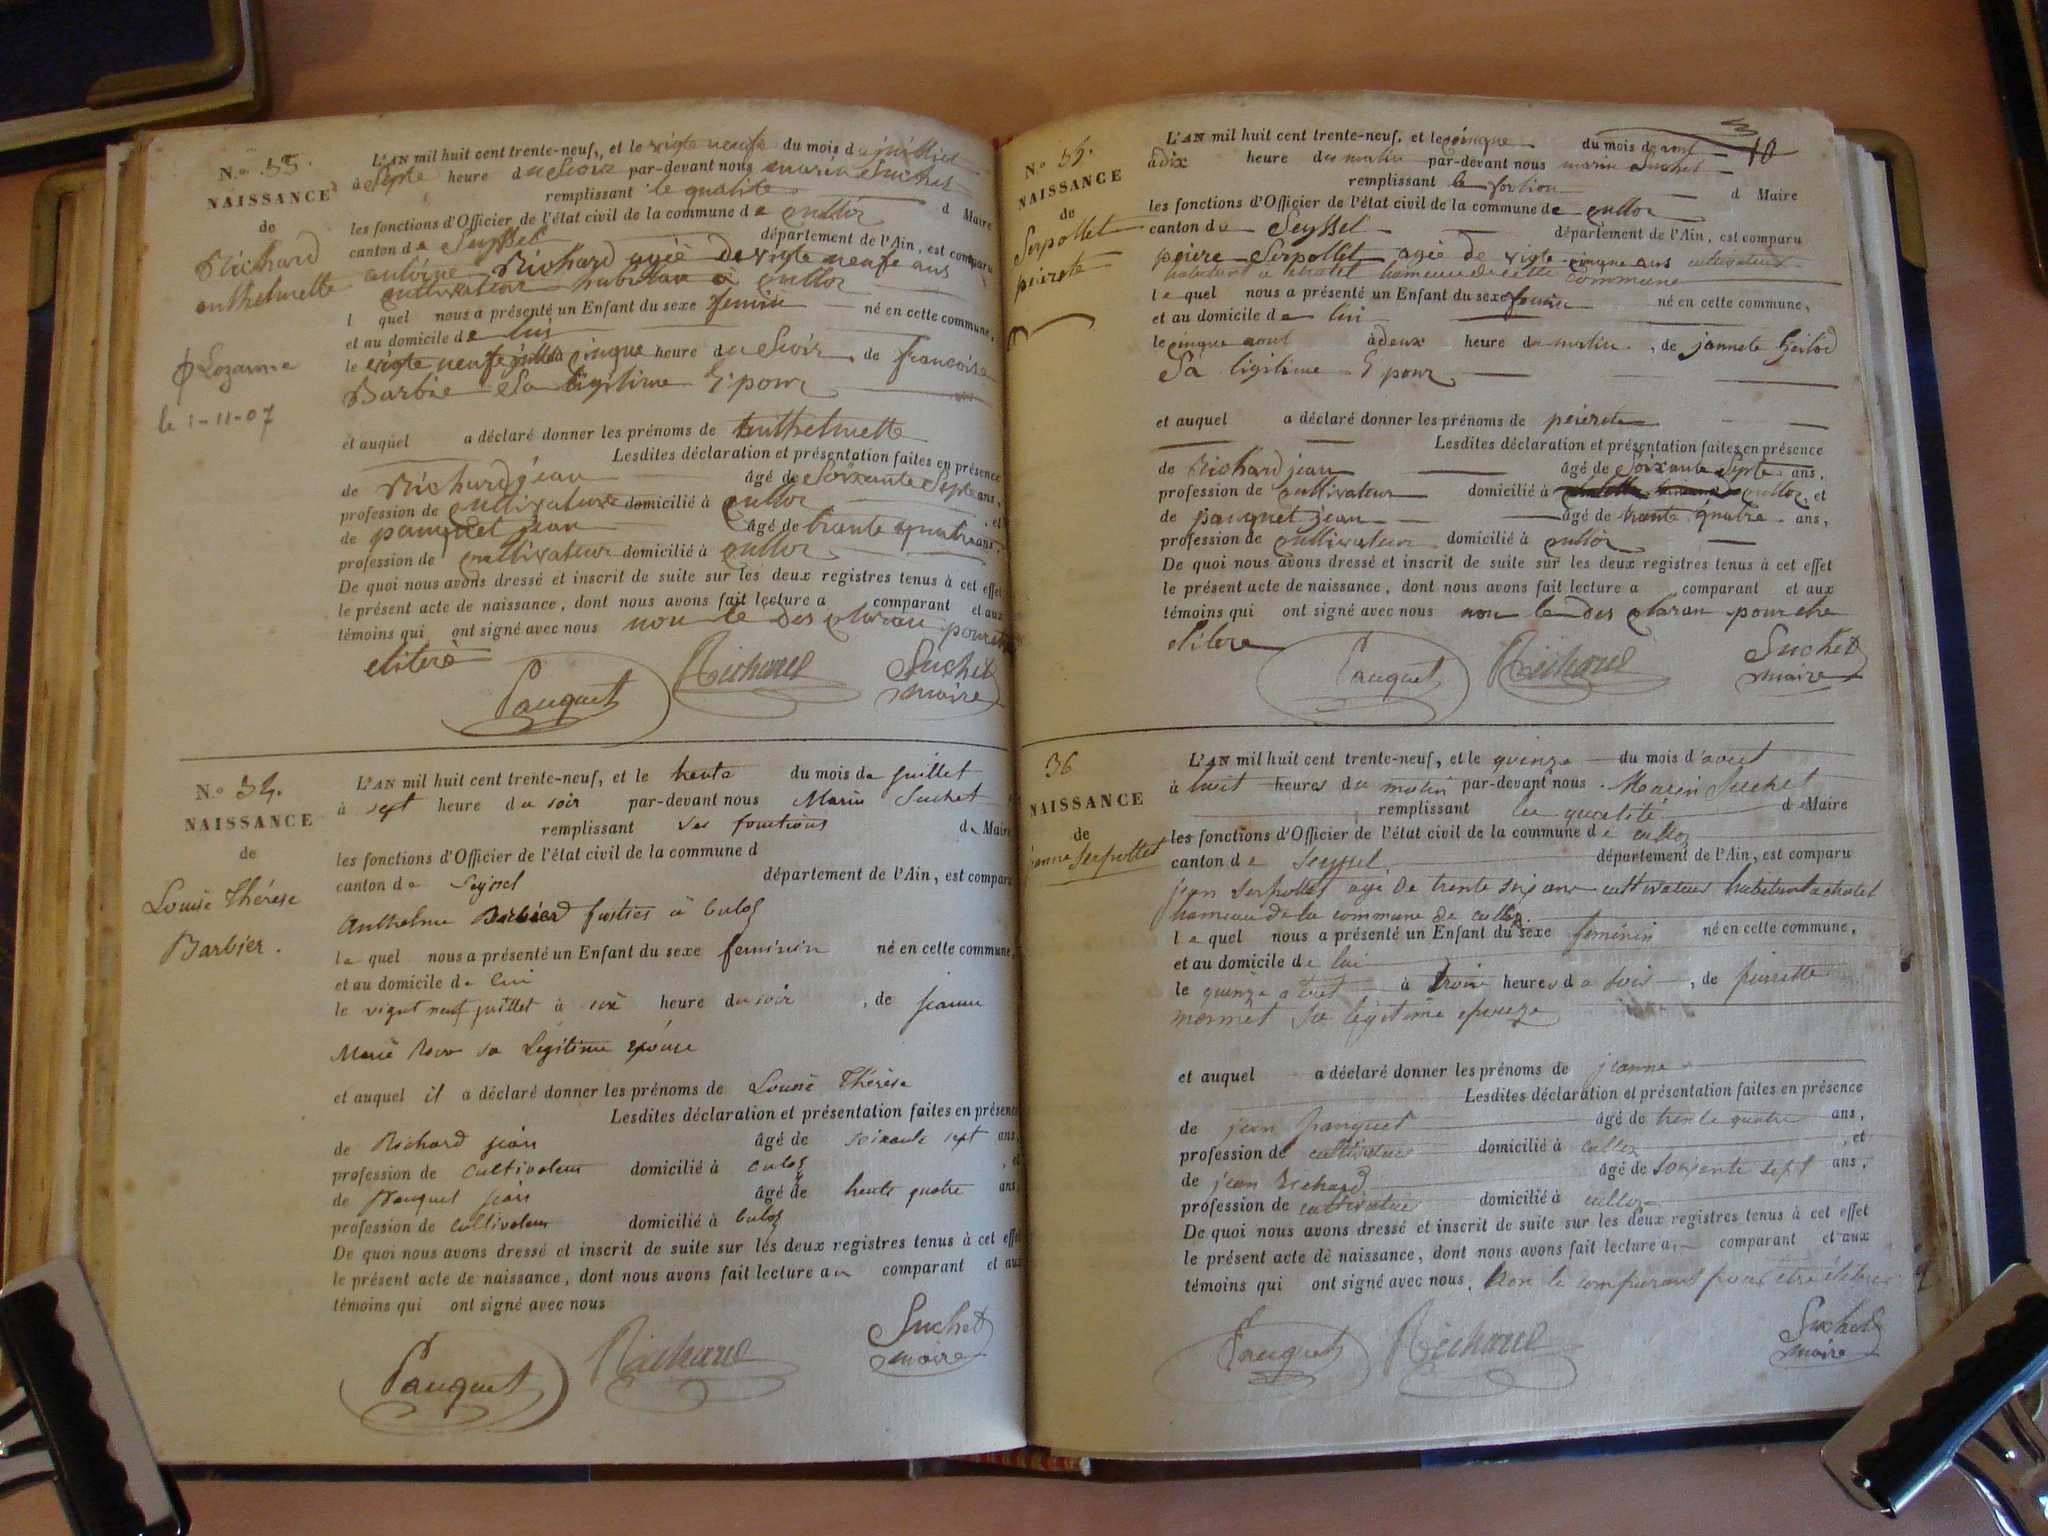 N.o 33.
NAISSANCE
de
Richard
anthelmette
Lozanne
le 1-11-07
L'AN mil huit cent trente-neuf, et le vigte neufe du mois de juilliet
à Septe heure du Soir par-devant nous marin Suchet
remplissant le qualite d Maire
les fonctions d'Officier de l'état civil de la commune de cullos
canton de Seyssel département de l'Ain, est comparu
antoine Richard agié de vigte neufe ans
cultivateur habitan a cullos
l quel nous a présenté un Enfant du sexe feminin né en cette commune,
et au domicile de lui
le vigte neufe juillet a cinque heure du Soir, de francoise
Barbie Sa ligitime Epouz
et auquel a déclaré donner les prénoms de anthelmette
Lesdites déclaration et présentation faites en présence
de Richard jean âgé de Soixante Septe ans,
profession de cultivateur domicilié à cullos , et
de pauquet jean âgé de trante quatre ans,
profession de cultivateur domicilié à cullos
De quoi nous avons dressé et inscrit de suite sur les deux registres tenus à cet effet
le présent acte de naissance, dont nous avons fait lecture a comparant et aux
témoins qui ont signé avec nous non le des claran pour etre
elitere
Pauquet Richard Suchet
maire
N.o 34.
NAISSANCE
de
Louise Thérèse
Barbier.
L'AN mil huit cent trente-neuf, et le trente du mois de juillet
à sept heure du soir par-devant nous Marin Suchet
remplissant ses fonctions de Maire
les fonctions d'Officier de l'état civil de la commune d
canton de Seyssel département de l'Ain, est comparu
Anthelme Barbier à Culoz
le quel nous a présenté un Enfant du sexe feminin né en cette commune,
et au domicile de lui
le vignt neuf juillet à six heure du soir , de jeanne
Marie sa Legitime épouse
et auquel il a déclaré donner les prénoms de Louise Thérèse
Lesdites déclaration et présentation faites en présence
de Richard jean âgé de soixante sept ans,
profession de cultivateur domicilié à Culoz , et
de Pauquet jean âgé de trente quatre ans,
profession de cultivateur domicilié à Culoz
De quoi nous avons dressé et inscrit de suite sur les deux registres tenus à cet effet
le présent acte de naissance, dont nous avons fait lecture au comparant et aux
témoins qui ont signé avec nous
Pauquet Richard Suchet
maire
10
N.o 35.
NAISSANCE
de
Serpollet
peirete
L'AN mil huit cent trente-neuf, et le cinque du mois de aout
à dix heure du matin par-devant nous marin Suchet
remplissant le d Maire
les fonctions d'Officier de l'état civil de la commune de cullos
canton de Seyssel département de l'Ain, est comparu
peiere Serpollet agié de vigte cinque ans cultivateur
habitant a chatel hameau de cette commune
le quel nous a présenté un Enfant du sexe né en cette commune,
et au domicile de lui
le cinque aout à deux heure du matin , de jannete
Sa ligitime Epouz
et auquel a déclaré donner les prénoms de peierete
Lesdites déclaration et présentation faites en présence
de Richard jean âgé de Soixante Septe ans,
profession de cultivateur domicilié à cullos, et
de pauquet jean âgé de trante quatre ans,
profession de cultivateur domicilié à cullos
De quoi nous avons dressé et inscrit de suite sur les deux registres tenus à cet effet
le présent acte de naissance, dont nous avons fait lecture a comparant et aux
témoins qui ont signé avec nous non le des claran pour etre
elitere
Pauquet Richard Suchet
maire
36
NAISSANCE
de
jeanne Serpollet
L'AN mil huit cent trente-neuf, et le quinze du mois d'aout
à huit heures du matin par-devant nous Marin Suchet
remplissant la qualité de Maire
les fonctions d'Officier de l'état civil de la commune de culloz
canton de Seyssel département de l'Ain, est comparu
jean Serpollet agé de trente six ans cultivateur habitant a chatel
hameau de la commune de culloz.
le quel nous a présenté un Enfant du sexe feminin né en cette commune,
et au domicile de lui
le quinze aout à trois heures du soir , de pierrette
mermet sa légitime epouze
et auquel a déclaré donner les prénoms de jeanne
Lesdites déclaration et présentation faites en présence
de jean Pauquet âgé de trente quatre ans,
profession de cultivateur domicilié à culloz , et
de jean Richard âgé de soixente sept ans,
profession de cultivateur domicilié à culloz
De quoi nous avons dressé et inscrit de suite sur les deux registres tenus à cet effet
le présent acte de naissance, dont nous avons fait lecture a comparant et aux
témoins qui ont signé avec nous, non le comparant pour etre
Pauquet Richard Suchet
maire